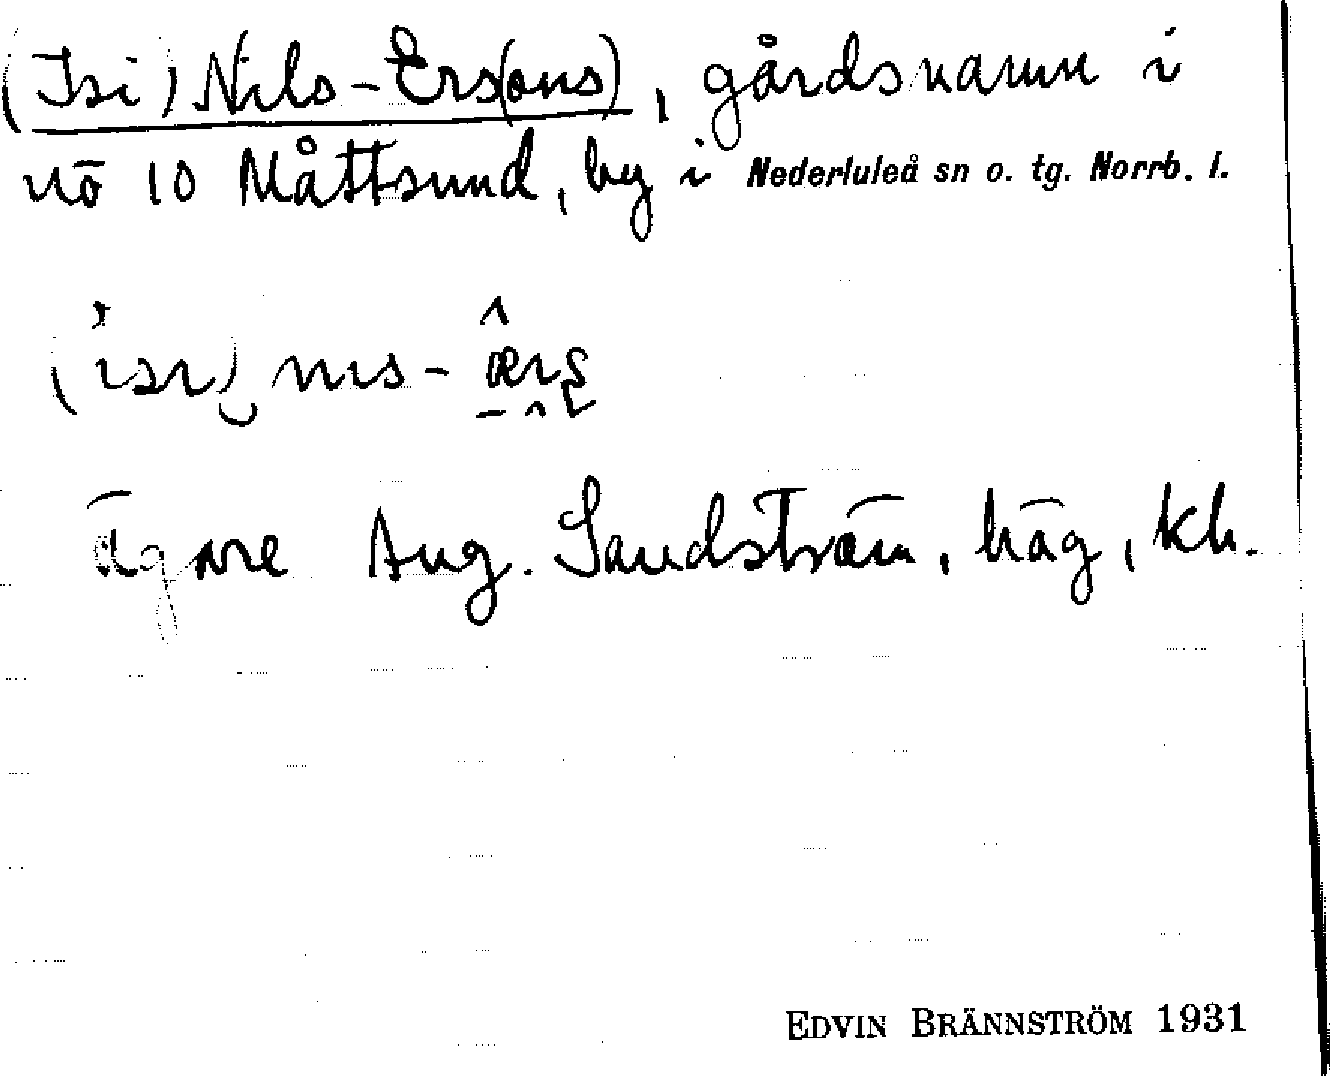 (Isi) Nils-Ers(ons), gårdsnamn i
nö 10 Måttsund, by i Nederluleå sn o. tg. Norrb. l.
(isi) nis-ærs
ägare Aug. Sandström, häg, kh.
EDVIN BRÄNNSTRÖM 1931